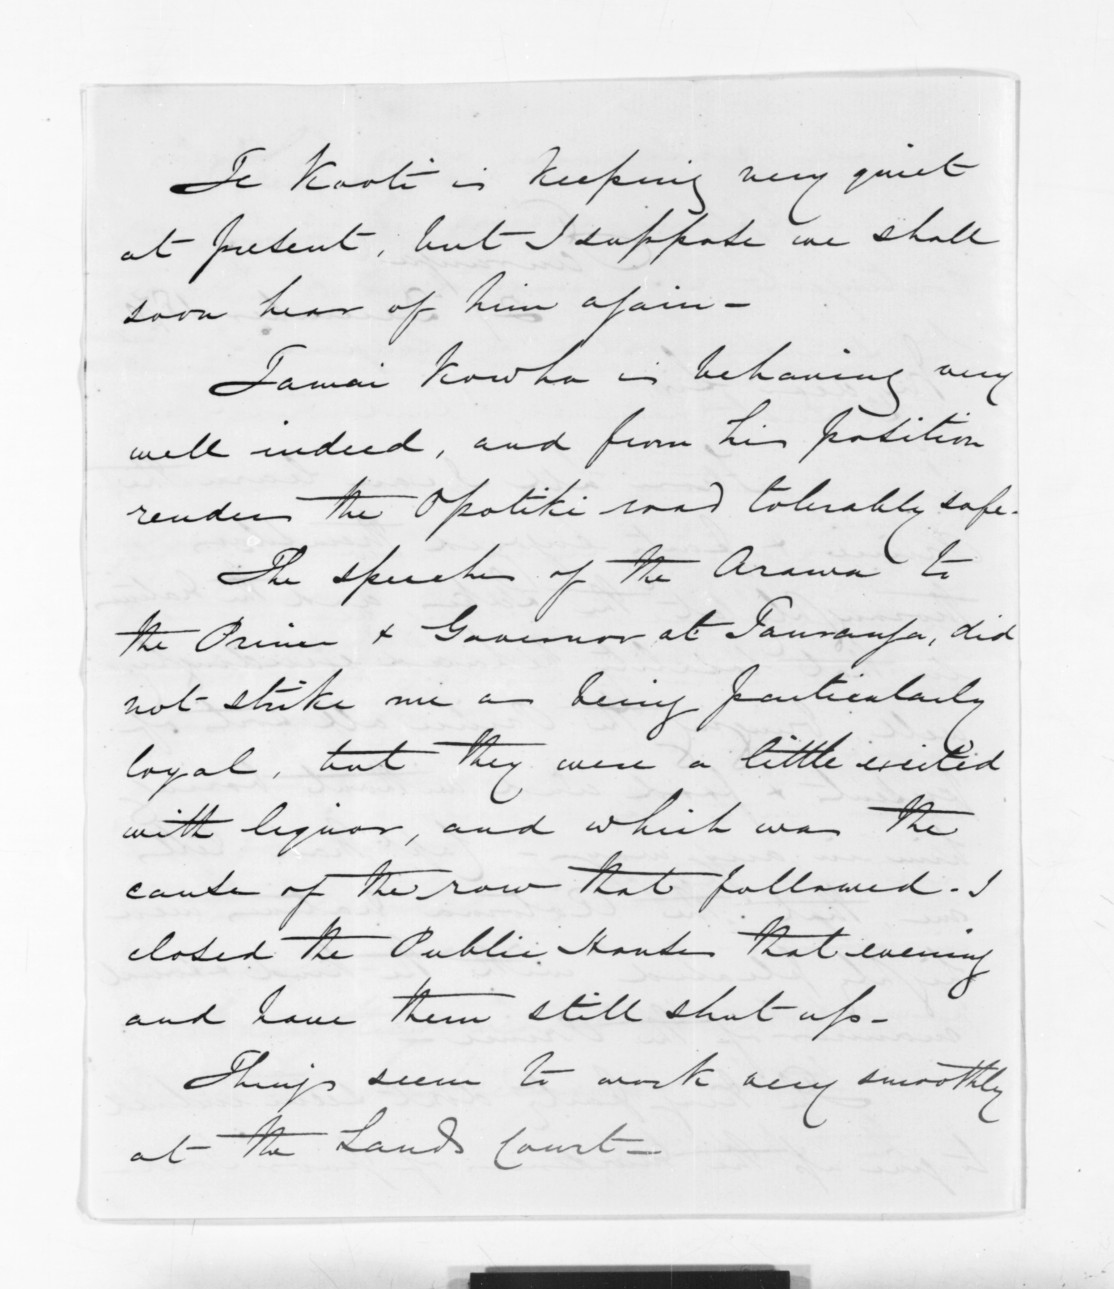 Te Kooti is keeping very quiet
at present, but I suppose we shall
soon hear of him again –
Tamai Kowha is behaving very
well indeed, and from his position
renders the Opotiki road tolerably safe.
The speeches of the Arawa to
the Prince & Governor at Tauranga, did
not strike me as being particularly
loyal, but they were a little excited
with liquor, and which was the
cause of the row that followed. I
closed the Public Houses that evening
and have them still shut up –
Things seem to work very smoothly
at the Lands Court –